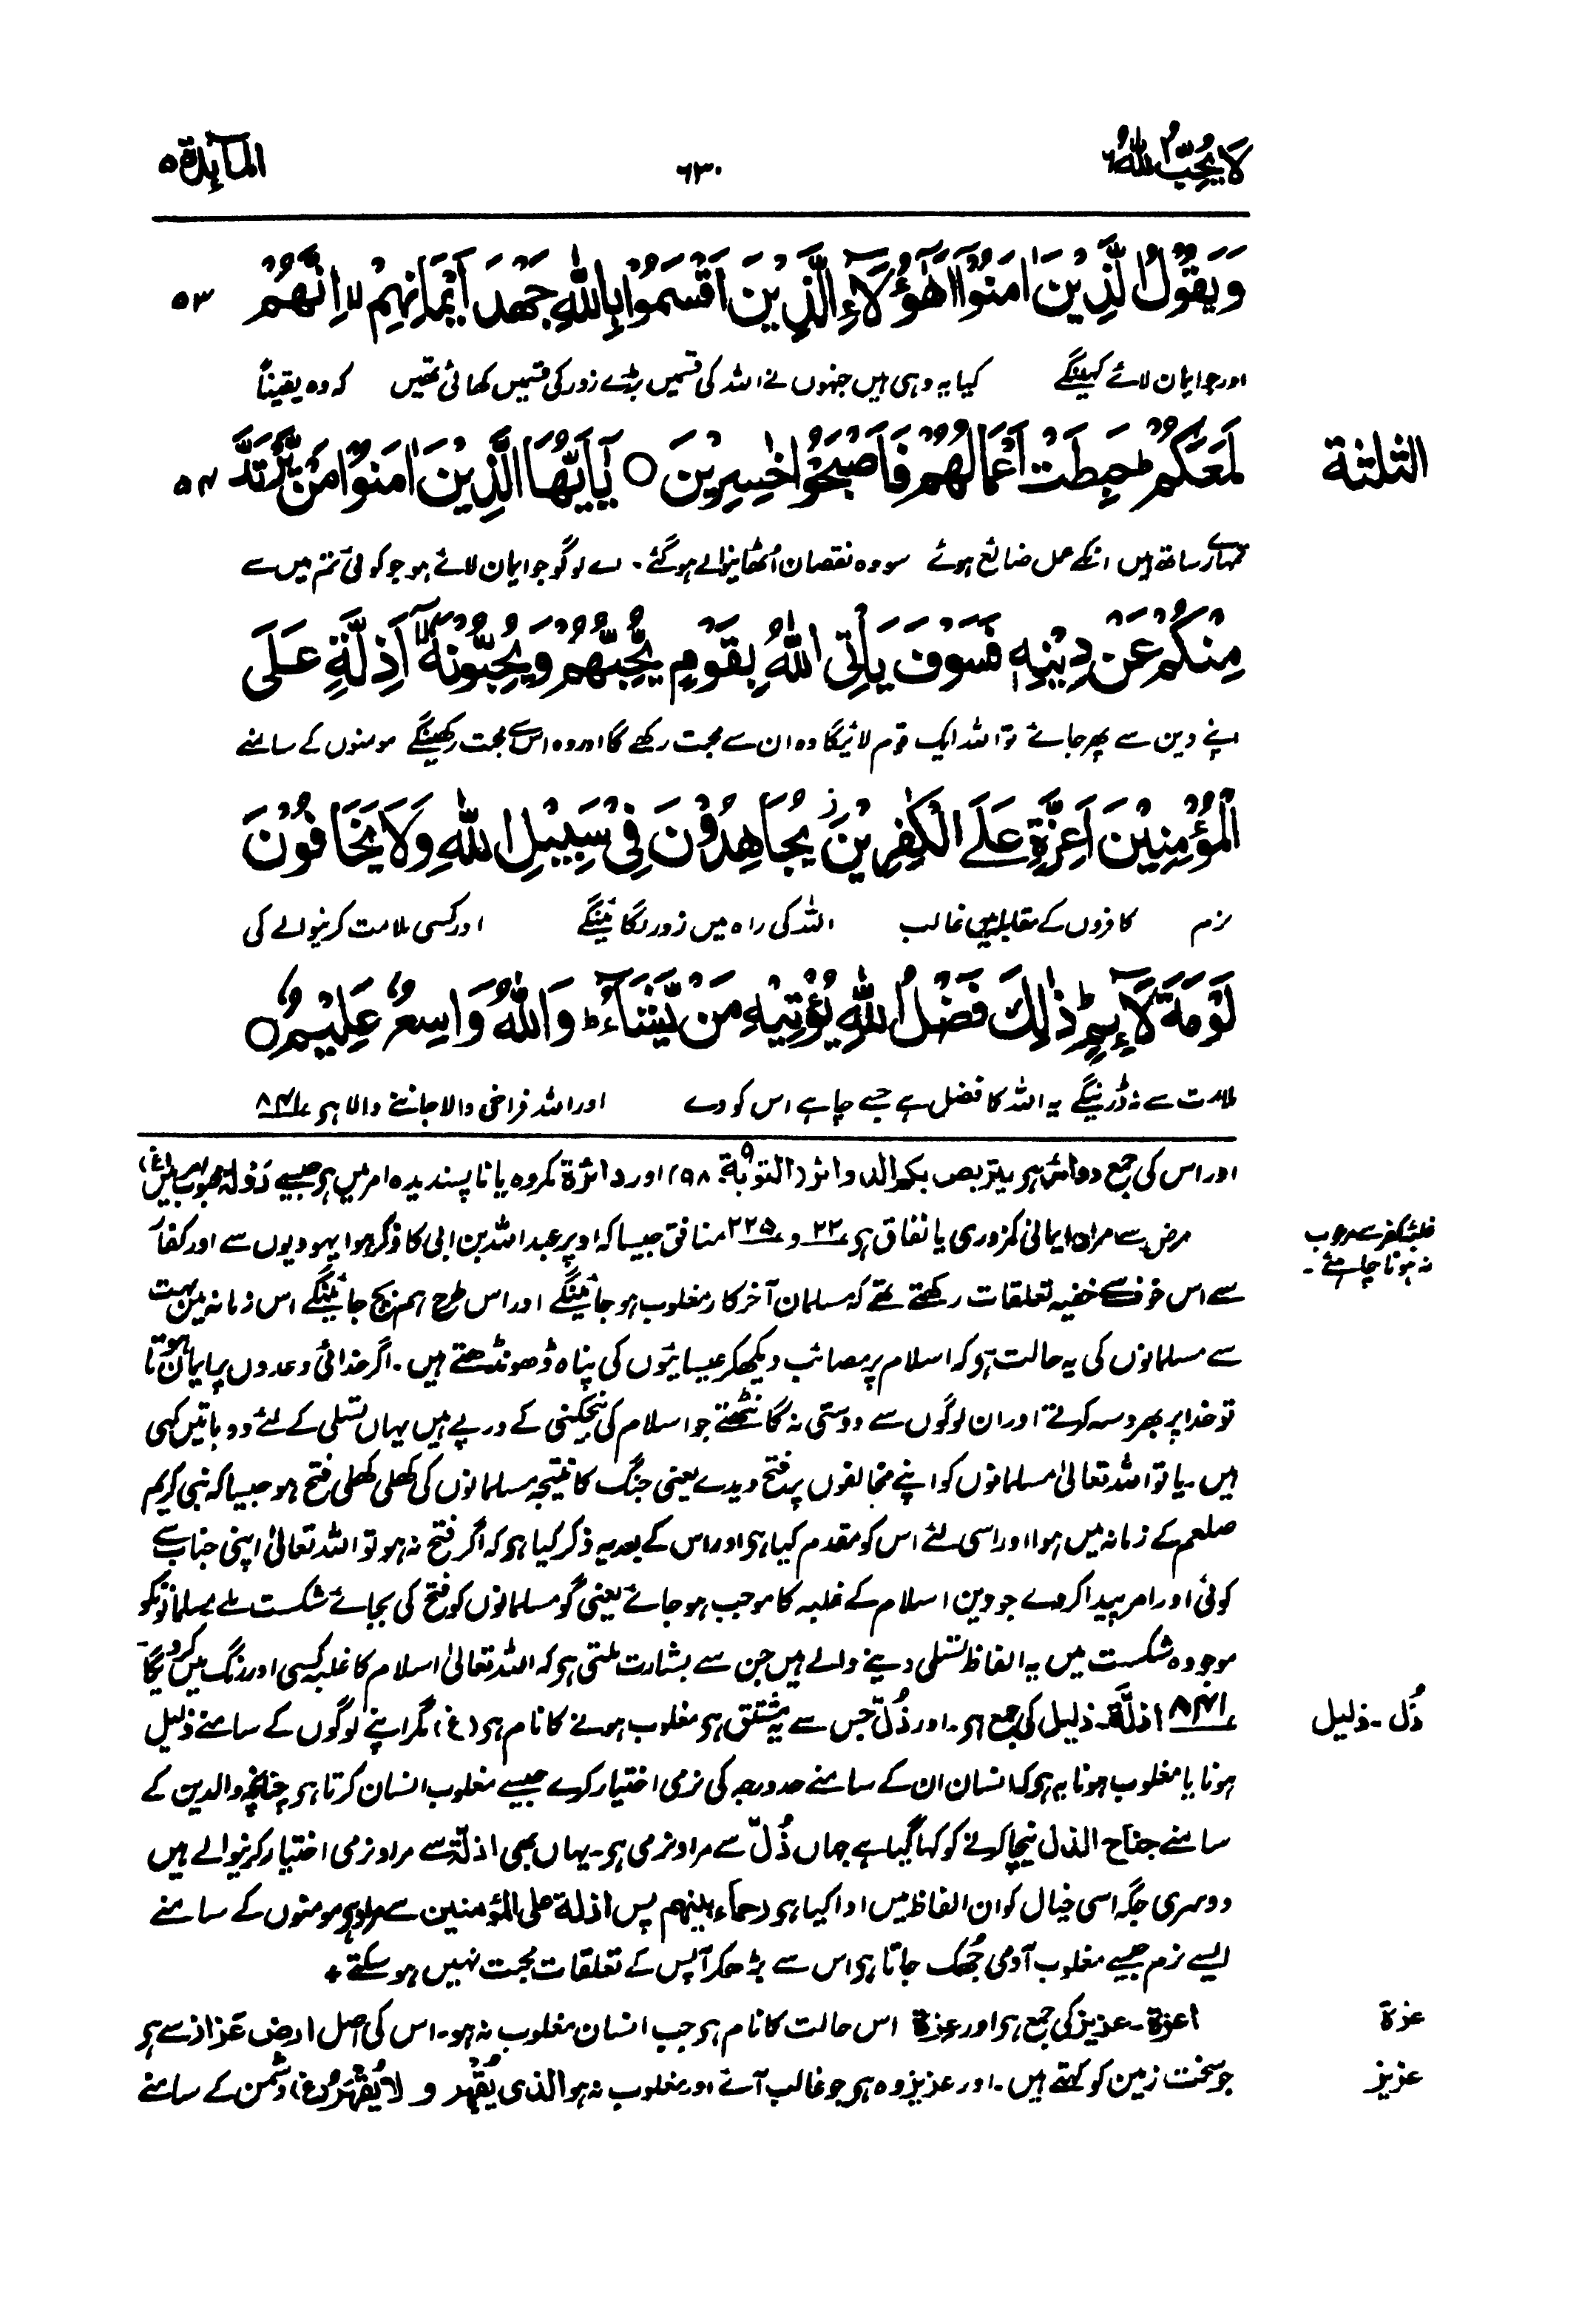 لَا يُحِبُّ اللّٰهُ ۶
۶۳۰
المآئدة ۵
وَيَقُوْلُ الَّذِيْنَ اٰمَنُوْٓا اَهٰٓؤُلَآءِ الَّذِيْنَ اَقْسَمُوْا بِاللّٰهِ جَهْدَ اَيْمَانِهِمْ ۙ اِنَّهُمْ ۵۳
اور جو ایمان لائے کہینگے کیا یہ وہی ہیں جنہوں نے اللہ کی قسمیں بڑے زور کی قسمیں کھائی تھیں کہ وہ یقیناً
لَمَعَكُمْ ؕ حَبِطَتْ اَعْمَالُهُمْ فَاَصْبَحُوْا خٰسِرِيْنَ ○ يٰٓاَيُّهَا الَّذِيْنَ اٰمَنُوْا مَنْ يَّرْتَدَّ ۵۴
الثلثة
تمہارے ساتھ ہیں انکے عمل ضائع ہوئے سو وہ نقصان اُٹھانیوالے ہوگئے۔ اے لوگو جو ایمان لائے ہو جو کوئی تم میں سے
مِنْكُمْ عَنْ دِيْنِهٖ فَسَوْفَ يَاْتِى اللّٰهُ بِقَوْمٍ يُّحِبُّهُمْ وَيُحِبُّوْنَهٗٓ ۙ اَذِلَّةٍ عَلَى
اپنے دین سے پھر جائے تو اللہ ایک قوم لائیگا وہ ان سے محبت رکھے گا اور وہ اس سے محبت رکھینگے مومنوں کے سامنے
الْمُؤْمِنِيْنَ اَعِزَّةٍ عَلَى الْكٰفِرِيْنَ ؗ يُجَاهِدُوْنَ فِىْ سَبِيْلِ اللّٰهِ وَلَا يَخَافُوْنَ
نرم کافروں کے مقابلہ میں غالب اللہ کی راہ میں زور لگائینگے اور کسی ملامت کرنیوالے کی
لَوْمَةَ لَآئِمٍ ؕ ذٰلِكَ فَضْلُ اللّٰهِ يُؤْتِيْهِ مَنْ يَّشَآءُ ؕ وَاللّٰهُ وَاسِعٌ عَلِيْمٌ ○
ملامت سے نہ ڈرینگے یہ اللہ کا فضل ہے جسے چاہے اس کو دے اور اللہ فراخی والا جاننے والا ہو ۸۴۱
اور اس کی جمع دوائر ہو یتربص بکم الدوائر (التوبۃ ۹: ۹۸) اور دائرۃ مکروہ یا ناپسندیدہ امر میں ہو جیسے دَولۃ محبوب امر میں (غ)
مرض سے مراد ایمانی کمزوری یا نفاق ہو ۲۲ و ۲۲۵ منافق جیسا کہ اوپر عبد اللہ بن ابی کا ذکر ہوا یہودیوں سے اور کفار
غلبۂ کفر سے مرعوب
نہ ہونا چاہئے۔
سے اس خوف سے خفیہ تعلقات رکھتے تھے کہ مسلمان آخر کار مغلوب ہو جائینگے اور اس طرح ہم بچ جائینگے اس زمانہ میں بہت
سے مسلمانوں کی یہ حالت ہو کہ اسلام پر مصائب دیکھکر عیسائیوں کی پناہ ڈھونڈھتے ہیں۔ اگر خدائی وعدوں پر ایمان ہوتا
تو خدا پر بھروسہ کرتے اور ان لوگوں سے دوستی نہ گانٹھتے جو اسلام کی بیخکنی کے درپے ہیں یہاں تسلی کے لئے دو باتیں کہی
ہیں۔ یا تو اللہ تعالیٰ مسلمانوں کو اپنے مخالفوں پر فتح دیدے یعنی جنگ کا نتیجہ مسلمانوں کی کھلی کھلی فتح ہو جیسا کہ نبی کریم
صلعم کے زمانہ میں ہوا اور اسی لئے اس کو مقدم کیا ہو اور اس کے بعد یہ ذکر کیا ہو کہ اگر فتح نہ ہو تو اللہ تعالیٰ اپنی جناب سے
کوئی اور امر پیدا کردے جو دین اسلام کے غلبہ کا موجب ہو جائے یعنی گو مسلمانوں کو فتح کی بجائے شکست ملے مسلمانونکو
موجودہ شکست میں یہ الفاظ تسلی دینے والے ہیں جن سے بشارت ملتی ہو کہ اللہ تعالیٰ اسلام کا غلبہ کسی اور رنگ میں کردیگا
۸۴۱ اذلّة۔ ذلیل کی جمع ہو۔ اور ذُلّ جس سے یہ مشتق ہو مغلوب ہونے کا نام ہو (غ) مگر اپنے لوگوں کے سامنے ذلیل
ذُل۔ ذلیل
ہونا یا مغلوب ہونا یہ ہو کہ انسان ان کے سامنے حد درجہ کی نرمی اختیار کرے جیسے مغلوب انسان کرتا ہو چنانچہ والدین کے
سامنے جناح الذل نیچا کرنے کو کہا گیا ہے جہاں ذُلّ سے مراد نرمی ہو۔ یہاں بھی اذلّة سے مراد نرمی اختیار کرنیوالے ہیں
دوسری جگہ اسی خیال کو ان الفاظ میں ادا کیا ہو رحماء بینہم پس اذلة علی المؤمنین سے مراد ہو مومنوں کے سامنے
ایسے نرم جیسے مغلوب آدمی جُھک جاتا ہو اس سے بڑھکر آپس کے تعلقات محبت نہیں ہو سکتے +
اعزة۔ عزیز کی جمع ہو اور عزة اس حالت کا نام ہو جب انسان مغلوب نہ ہو۔ اس کی اصل ارض عزاز سے ہو
عزة
جو سخت زمین کو کہتے ہیں۔ اور عزیز وہ ہو جو غالب آئے اور مغلوب نہ ہو الذی یُقْهِر و لا یُقْهَرُ (غ) دشمن کے سامنے
عزیز